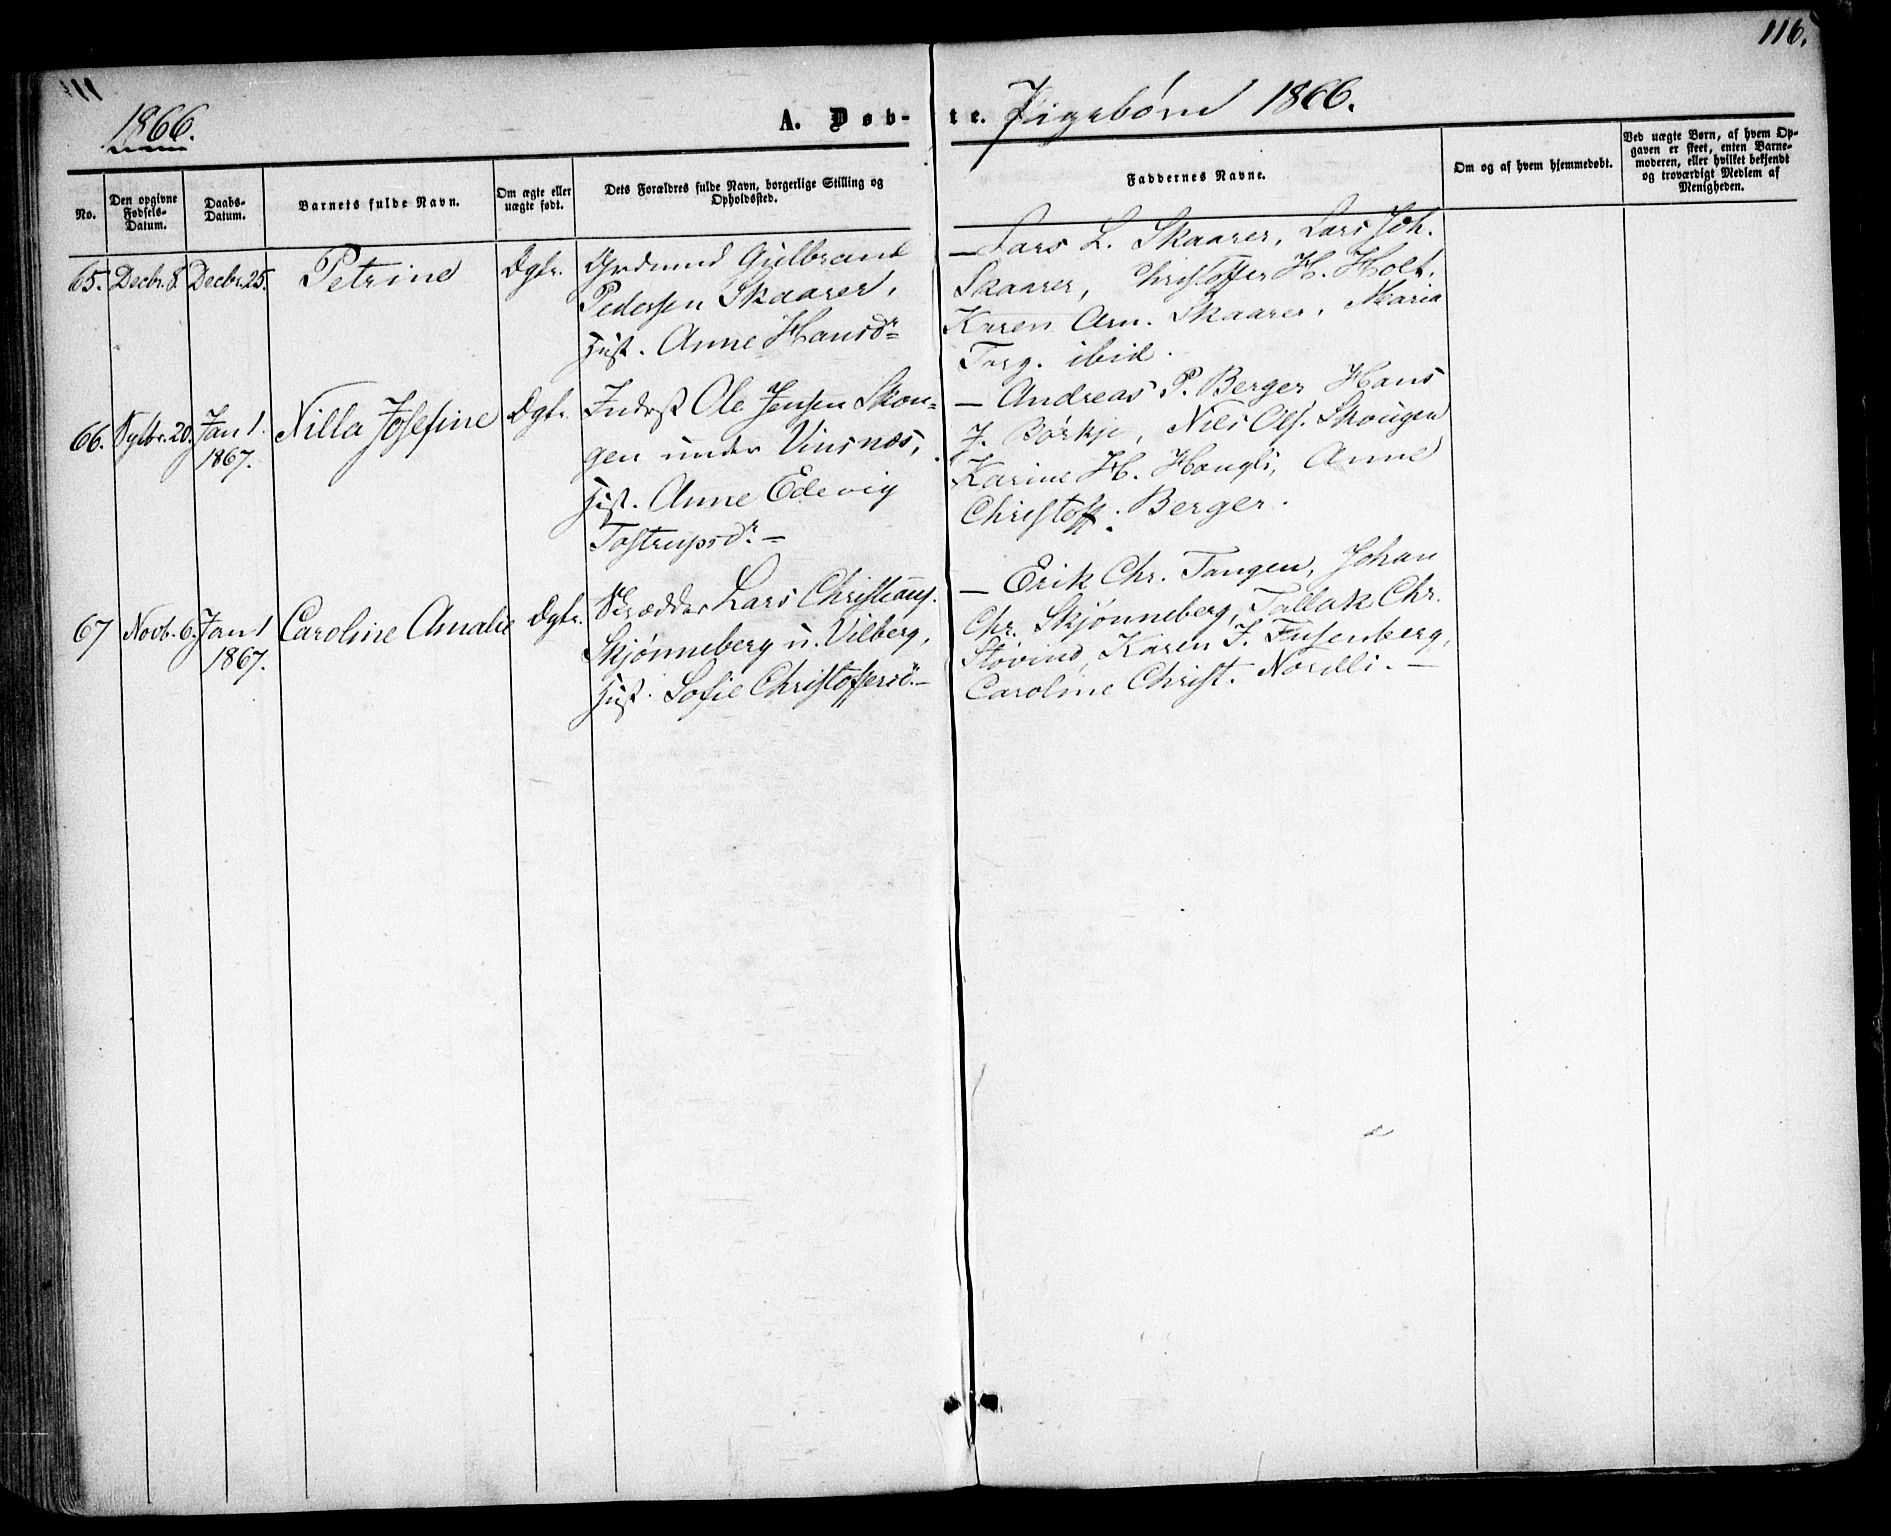 116.
1866.
A. Døb-te. Pigebørn 1866.
No.
Den opgivne Fødsels-Datum.
Daabs-Datum.
Barnets fulde Navn.
Om ægte eller uægte født.
Dets Forældres fulde Navn, borgerlige Stilling og Opholdssted.
Faddernes Navne.
Om og af hvem hjemmedøbt.
Ved uægte Børn, af hvem Opgaven er skeet, enten Barnemoderen, eller hvilket bekjendt og troværdigt Medlem af Menigheden.
65. Decbr. 8. Decbr. 25. Petrine Ægte.
Gulbrand
Pedersen Skaarer,
Hust. Anne Hansdr
— Lars L. Skaarer, Lars Joh.
Skaarer, Christoffer H. Holt.
Karen Arn. Skaarer, Maria
Torg. ibid.
66. Sptbr. 20. Jan 1. 1867. Nilla Josefine Ægte.
Inderst Ole Jensen Skou-
gen under Vinsnæs,
Hust. Anne Edevig
Tostrupsdr. —
— Andreas P. Berger Hans
J. Børkje, Niels Ols. Skougen
Karine H. Haugli, Anne
Christoff. Berger.
67 Novb. 6. Jan 1 1867. Caroline Amalie Ægte.
Skrædder Lars Christians.
Skjønneberg u. Vilberg,
Hust. Sofie Christoffersd. —
— Erik Chr. Tangen, Johan
Chr. Skjønneberg, Tallak Chr.
Støvind, Karen J. Fusenberg,
Caroline Christ. Nordli. —